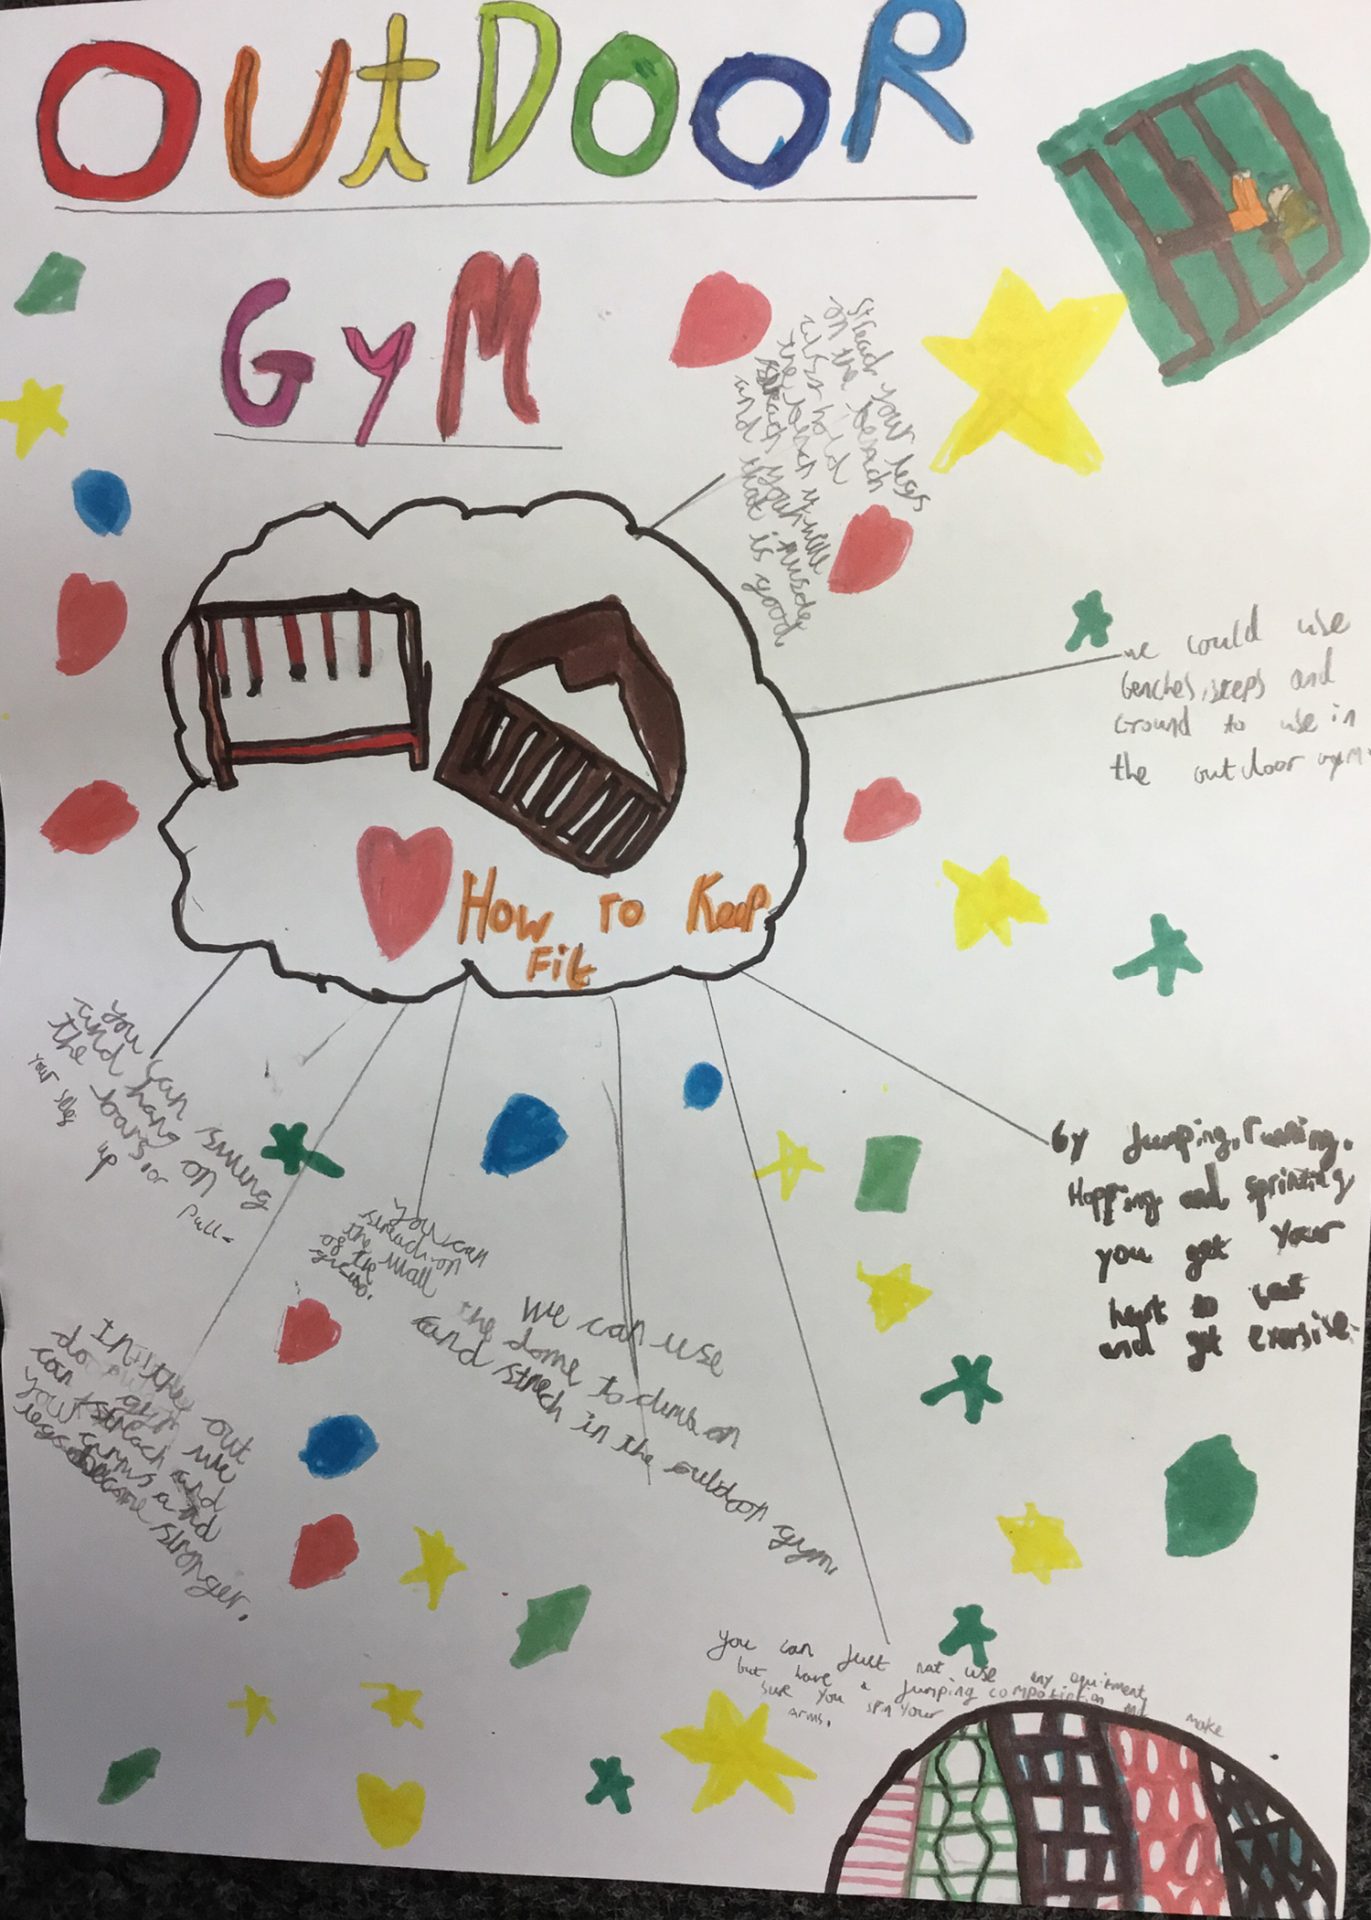 OUtDOOR
GyM
streach your legs
on the bench
also hold
the bench
streach your
and that is good
we could use
benches, steps and
Ground to use in
the outdoor gym.
How To Keep
Fit
you can swing
and hang on
the bars, or pull-
your slefs up
By Jumping, running,
Hopping and sprinting
you get your
heart to beat
and get exersise.
you can
streach on
the wall
of the
We can use
the dome to climb on
and strech in the outdoor gym.
In the out
door gym we
can streach and
your arms and
legs become stronger.
you can just not use any equitment
but have a jumping compotiotion make
sure you spin your
arms.